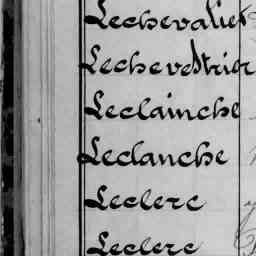 Lechevaliet
Lechevestrier
Leclainche
Leclanche
Leclerc
Leclerc